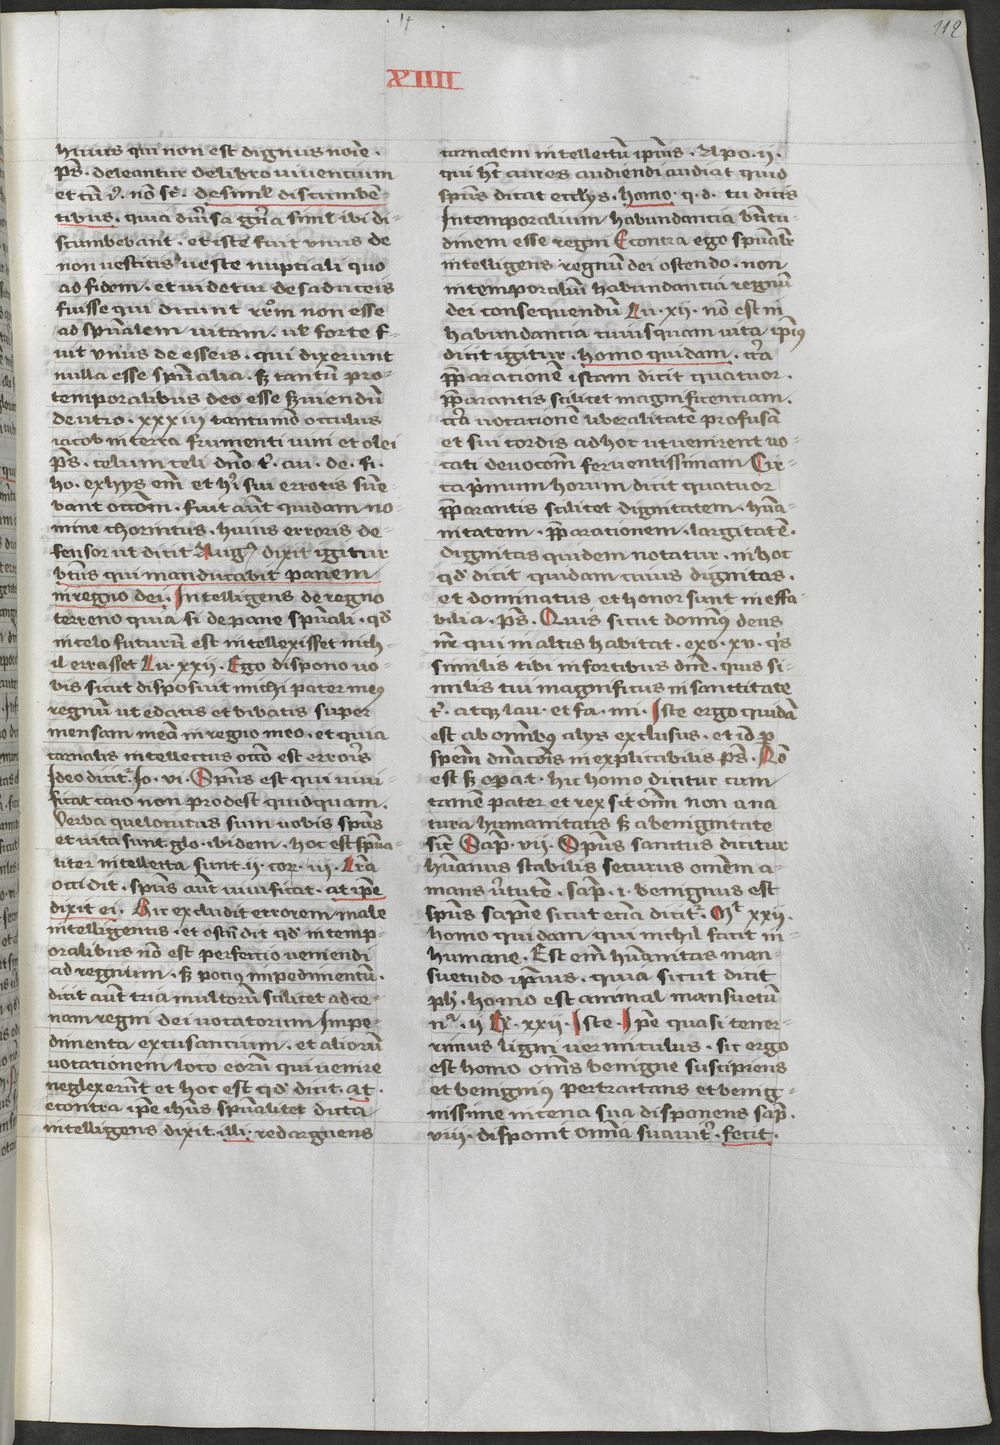 119
XIIII
huius qui non est dignus noīe.
ps̄. deleantur de libro viuentium
et cū i⁹. nō sc̄. de simul discumben-
tibus. quia diu̓sa gn̄a siml̓ ibi di-
scumbebant. et iste fuit vnus de
non vestitis ueste nuptiali quo
ad fidem. et videtur de saduceis
fuisse qui dicunt rr̄om̄ non esse
ad spūalem uitam. ul̓ forte f-
uit vnus de esseis. qui dixerunt
nulla esse spūalia. sꝫ tantū pro
temporalibus deo esse s̓uiendū
deutro. xxxiii tantumō occulus
iacob in terra frumenti uini et olei
ps̄. celum celi dn̄o t̓. au. de. fi.
ho. ex hys em̄ et hī sui erroris fūe-
bant occōm. fuit aūt quidam no-
mine thorintus. huius erroris de-
fensor ut dicit Aug⁹ dixit igitur
btūs qui manducabit panem
in regno dei. Intelligens de regno
terreno quia si de pane spūali. qd̓
in celo futurum est intellexisset nich-
il errasset Lu. xxii. Ego dispono uo-
bis sicut disposuit michi pater meus
regnū ut edatis et bibatis super
mensam meā in regno meo. et quia
carnalis intellectus occō est errorīs
Ideo dicit̓ Io. vi. Spūs est qui uiui-
ficat caro non prodest quidquam.
Verba que locutus sum uobis spūs
et uita sunt. glo. ibidem. hoc est spūa-
liter intellecta sunt. ii. cor. iii. Lrā
occidit. spūs aūt uiuificat. at ip̄e
dixit ei. Hic excludit errorem male
intelligentis. et ostn̄dit qd̓ in temp-
oralibus nō est perfectio ueniendi
ad regnum. sꝫ pocius impedimentū.
dicit aūt tria multorū scilicet ad ce-
nam regni dei uocatorum Impe-
dimenta excusantium. et aliorū
uocationem loco eorū qui uenire
neglexerūt et hoc est qd̓ dicit. at.
econtra ip̄e ih̄us spūaliter dicta
intelligens dixit. illi. redarguens
carnalem intellectū ip̄ius. Apo. ii.
qui ht̄ aures audiendi audiat quid
spūs dicat ecclys. homo. q. d. tu dicis
In temporalium habundancia btītu-
dinem esse regni Econtra ego spūalit̓
intelligens regnū dei ostendo. non
in temporaliū habundancia regnū
dei consequendū Lu. xii. nō est in
habundancia cuiusquam uita ip̄ius
dicit igitur. homo quidam. cr̓a
pp̄arationē istam dicit quatuor.
pp̄arantis scilicet magnificenciam.
cr̓a uocationē liberalitatē profusā
et sui cordis ad hoc ut uenirent uo-
cati deuocōm feruentissimam Cir-
ca p̓mum horum dicit quatuor
pp̄arantis scilicet dignitatem. hūa-
nitatem. pp̄arationem. largitatē.
dignitas quidem notatur. in hoc
qd̓ dicit quidam cuius dignitas.
et dominatus et honor sunt in effa-
bilia. ps̄. Quis sicut dominus deus
nr̄ qui in altis habitat. exo. xv. q̓s
similis tibi in fortibus dn̄e. quis si-
milis tui magnificus in sanctitate
t̓. atqꝫ lau. et fa. mi. Iste ergo quidā
est ab omībus alys exclusus. et id p̱
spēm dn̄acōis inexplicabilis ps̄. Nō
est sꝫ opa t. hic homo dicitur cum
tamen pater et rex sit om̄ non a na
tura humanitatis sꝫ a benignitate
sic̄ Sap̄. vii. Spūs sanctus dicitur
hūanus stabilis securus omēm a-
mans v̓tutē. sap̄. i. benignus est
spūs sapīe sicut etiā dicit̓ Mt̓ xxii.
homo quidam qui nichil facit in-
humane. Est em̄ hūanitas man-
suetudo ip̄ius. quia sicut dicit
ph̄. homo est animal mansuetū
nᵃ. ii R̓. xxii. Iste. Ip̄e quasi tener-
rimus ligni uermiculus. sic ergo
est homo om̄s benigne suscipiens
et benignius pertractans et benig-
nissime in cena sua disponens sap̄.
viii. disponit omīa suauit̓. fecit.